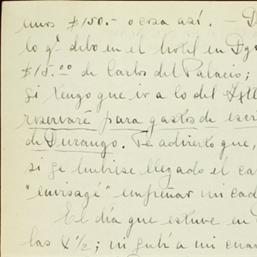 unos $150.- o cosa así. -
lo q' debo en el hotel en Dgo
$15.00 de Carlos del Palacio;
si tengo que ir a lo del
reservaré para gastos de
de Durango. Te advierto que,
si se hubiese llegado el ca
"envisagé" empeñar mi cad
El día que estuve en
las X½; mi a mi cua